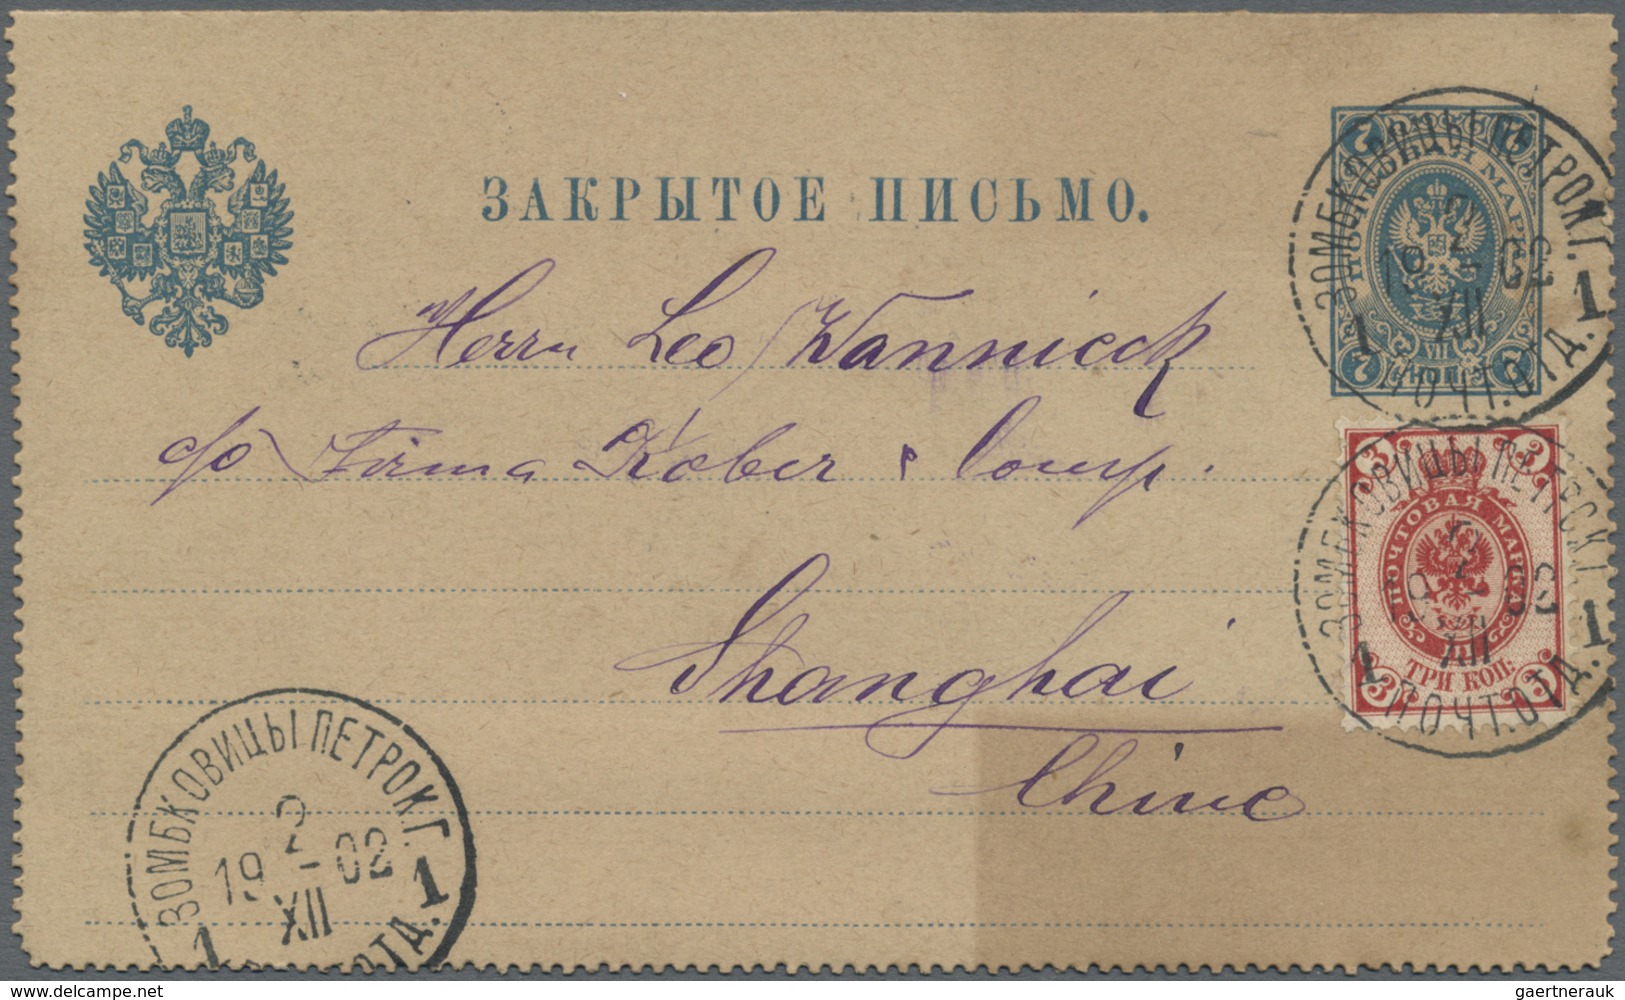 ЗАКРЫТОЕ ПИСЬМО.
7 7
7 КОП. 7
ЗОМБКОВИЦЫ ПЕТРОК.Г.
2
19 - 02
XII
1 ПОЧТ.ОТД. 1
Herrn Leo Wannieck
c/o Firma Kober & Comp.
Shanghai
Chine
3 3
ПОЧТОВАЯ МАРКА
ТРИ КОП.
3 3
ЗОМБКОВИЦЫ ПЕТРОК.Г.
2
19 - 02
XII
1 ПОЧТ.ОТД. 1
ЗОМБКОВИЦЫ ПЕТРОК.Г.
2
19 2 - 02
XII
1 ОТД. 1
www.delcampe.net
gaertnerauk